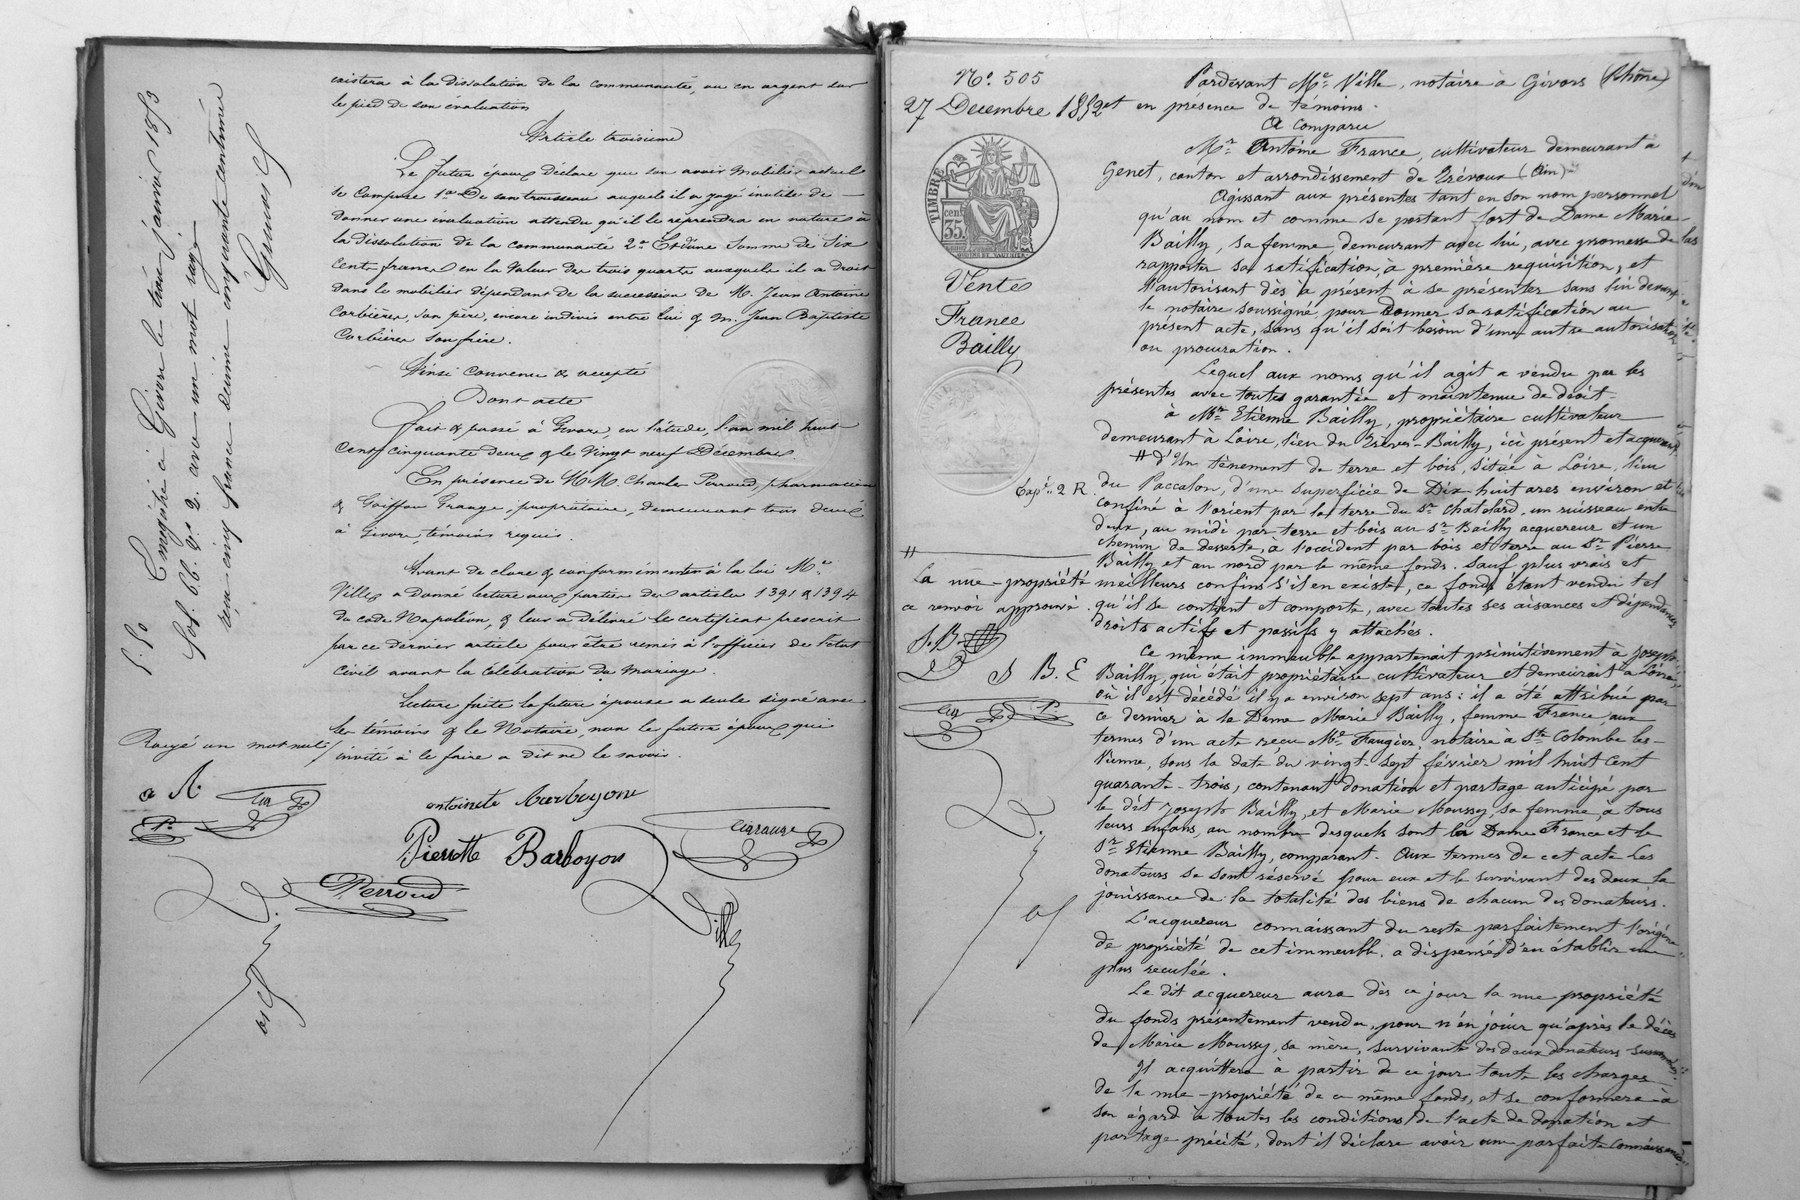 existera à la dissolution de la communauté, ou en argent sur
le pied de son évaluation
Article troisième
Le futur époux déclare que son avoir mobilier actuel
se compose 1° De son trousseau auquel il a jugé inutile de
donner une évaluation attendu qu'il le reprendra en nature à
la dissolution de la communauté 2° Et d'une somme de Six
cents francs en la valeur des trois quarts auxquels il a droit
dans le mobilier dépendant de la succession de M. Jean Antoine
Corbière, son père, encore indivis entre lui & M. Jean Baptiste
Corbière son frère.
Ainsi convenu & accepté
Dont acte
fait & passé à Givors, en l'étude, l'an mil huit
cent cinquante deux & le vingt neuf Décembre.
En présence de M.M. Charles Perroud, pharmacien
& Goiffon Grange, propriétaire, demeurant tous deux
à Givors, témoins requis.
Avant de clore & conformément à la loi Me
Ville a donné lecture aux parties des articles 1391 & 1394
du code Napoléon, & leur a délivré le certificat prescrit
par ce dernier article pour être remis à l'officier de l'état
civil avant la célébration du mariage.
Lecture faite la future épouse a seule signé avec
les témoins & le Notaire, non le futur époux qui
invité à le faire a dit ne le savoir.
Rayé un mot nul
a A.
P.
antoinete barboyon
Pierrette Barboyon
Perroud
Grange
Ville
Enregistré à Givors le trois janvier 1853
fol. 66. Vo c. 2. avec un mot rayé
reçu cinq francs décime cinquante centimes
N° 505
27 Decembre 1852
TIMBRE
35 cent.
Vente
France
Bailly
Exp.on 2 R.
#
la nue-propriété
ce renvoi approuvé.
J. B.
J B. E
P.
Pardevant Me Ville, notaire à Givors (Rhône)
et en présence de témoins.
A comparu
Mr Antoine France, cultivateur demeurant à
Genet, canton et arrondissement de Trévoux (Ain)
Agissant aux présentes tant en son nom personnel
qu'au nom et comme se portant fort de Dame Marie
Bailly, sa femme demeurant avec lui, avec promesse de
rapporter sa ratification à première requisition, et
l'autorisant dès à présent à se présenter sans lui devant
le notaire soussigné, pour donner sa ratification au
présent acte, sans qu'il soit besoin d'une autre autorisation
ou procuration.
Lequel aux noms qu'il agit a vendu par les
présentes avec toutes garantie et maintenue de droit
à Mr Etienne Bailly, propriétaire cultivateur
demeurant à Loire, lieu du Bailly, ici présent et acquereur
# d'Un tènement de terre et bois, situé à Loire, lieu
du Paccalon, d'une superficie de Dix huit ares environ et
confiné à l'orient par la terre du Sr Chatelard, un ruisseau entre
deux, au midi par terre et bois au Sr Bailly acquereur et un
chemin de desserte, à l'occident par bois et terre au Sr Pierre
Bailly et au nord par le même fonds. Sauf plus vrais et
meilleurs confins s'il en existe, ce fonds étant vendu tel
qu'il se contient et comporte, avec toutes ses aisances et dépendances
droits actifs et passifs y attachés.
Ce même immeuble appartenait primitivement à Joseph
Bailly, qui était propriétaire cultivateur et demeurait à Loire,
où il est décédé il y a environ sept ans: il a été attribué par
ce dernier à la Dame Marie Bailly, femme France aux
termes d'un acte reçu Me Faugier, notaire à Ste Colombe les-
Vienne, sous la date du vingt-sept février mil huit cent
quarante-trois, contenant donation et partage anticipé par
le dit Joseph Bailly, et Marie Moussy, sa femme, à tous
leurs enfans, au nombre desquels sont la Dame France et le
Sr Etienne Bailly, comparant. Aux termes de cet acte les
donateurs se sont réservé pour eux et le survivant des deux la
jouissance de la totalité des biens de chacun des donateurs.
L'acquereur connaissant du reste parfaitement l'origine
de propriété de cet immeuble, a dispensé d'en établir une
plus reculée.
Le dit acquereur aura dès ce jour la nue propriété
du fonds présentement vendu, pour n'en jouir qu'après le décès
de Marie Moussy, sa mère, survivante des deux donateurs susnommés.
Il acquittera à partir de ce jour toutes les charges
de la nue-propriété de ce même fonds, et se conformera à
son égard à toutes les conditions de l'acte de donation et
partage précité, dont il déclare avoir une parfaite connaissance.